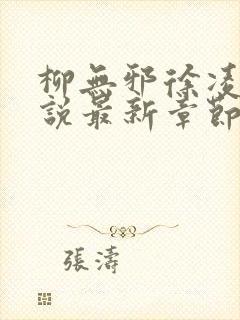 柳無邪徐凌
說最新章節
張濤